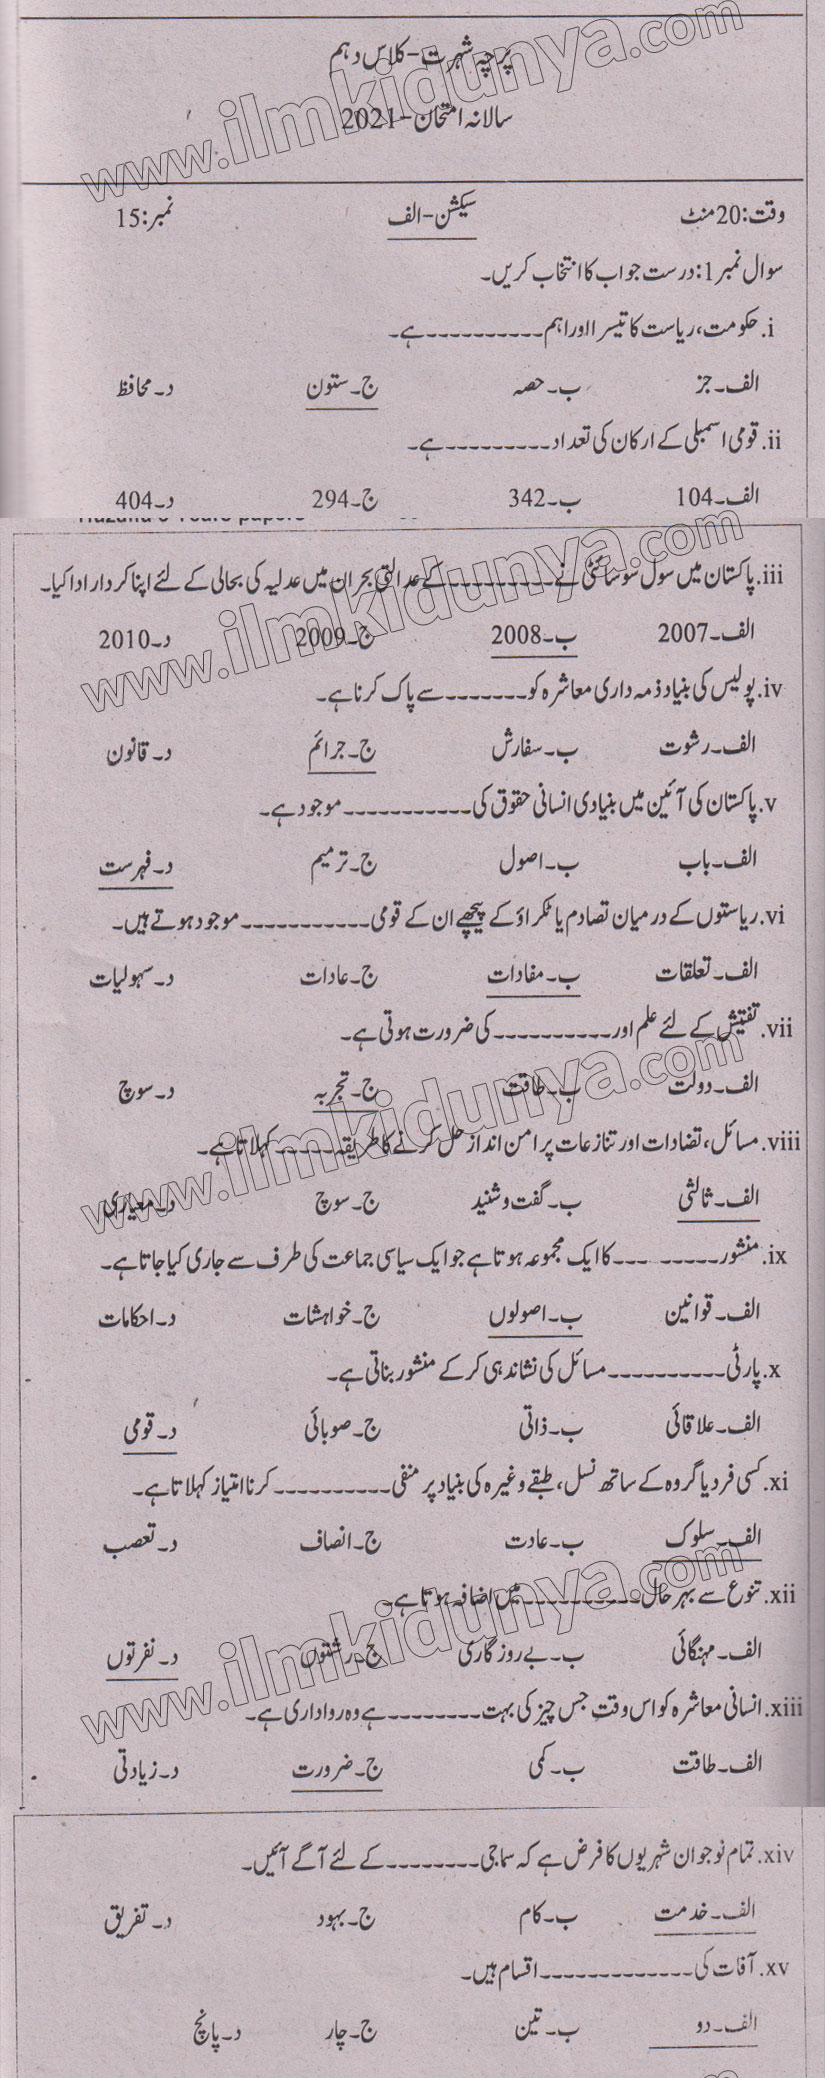 پرچہ شہریت-کلاس دہم
سالانہ امتحان-2021
وقت:20 منٹ سیکشن-الف نمبر:15
سوال نمبر1:درست جواب کا انتخاب کریں۔
i. حکومت، ریاست کا تیسرا اور اہم۔۔۔۔۔۔۔۔۔۔ہے۔
الف۔جز ب۔حصہ ج۔ستون د۔محافظ
ii. قومی اسمبلی کے ارکان کی تعداد۔۔۔۔۔۔۔۔۔ہے۔
الف۔104 ب۔342 ج۔294 د۔404
iii. پاکستان میں سول سوسائٹی نے۔۔۔۔۔۔۔۔۔کے عدالتی بحران میں عدلیہ کی بحالی کے لئے اپنا کردار ادا کیا۔
الف۔2007 ب۔2008 ج۔2009 د۔2010
iv. پولیس کی بنیاد ذمہ داری معاشرہ کو۔۔۔۔۔۔۔سے پاک کرنا ہے۔
الف۔رشوت ب۔سفارش ج۔جرائم د۔قانون
v. پاکستان کی آئین میں بنیادی انسانی حقوق کی۔۔۔۔۔۔۔۔۔۔۔موجود ہے۔
الف۔باب ب۔اصول ج۔ترمیم د۔فہرست
vi. ریاستوں کے درمیان تصادم یا ٹکراؤ کے پیچھے ان کے قومی۔۔۔۔۔۔۔۔۔۔۔موجود ہوتے ہیں۔
الف۔تعلقات ب۔مفادات ج۔عادات د۔سہولیات
vii. تفتیش کے لئے علم اور۔۔۔۔۔۔۔۔۔۔کی ضرورت ہوتی ہے۔
الف۔دولت ب۔طاقت ج۔تجربہ د۔سوچ
viii. مسائل، تضادات اور تنازعات پر امن انداز حل کرنے کا طریقہ۔۔۔۔۔کہلاتا ہے۔
الف۔ثالثی ب۔گفت و شنید ج۔سوچ د۔معیاری
ix. منشور۔۔۔۔۔۔۔۔۔کا ایک مجموعہ ہوتا ہے جو ایک سیاسی جماعت کی طرف سے جاری کیا جاتا ہے۔
الف۔قوانین ب۔اصولوں ج۔خواہشات د۔احکامات
x. پارٹی۔۔۔۔۔۔۔۔۔۔مسائل کی نشاندہی کر کے منشور بناتی ہے۔
الف۔علاقائی ب۔ذاتی ج۔صوبائی د۔قومی
xi. کسی فرد یا گروہ کے ساتھ نسل، طبقے وغیرہ کی بنیاد پر منفی۔۔۔۔۔۔۔۔۔۔کرنا امتیاز کہلاتا ہے۔
الف۔سلوک ب۔عادت ج۔انصاف د۔تعصب
xii. تنوع سے بہر حال۔۔۔۔۔۔۔۔۔۔میں اضافہ ہوتا ہے۔
الف۔مہنگائی ب۔بے روزگاری ج۔رشتوں د۔نفرتوں
xiii. انسانی معاشرہ کو اس وقت جس چیز کی بہت۔۔۔۔۔۔۔۔ہے وہ رواداری ہے۔
الف۔طاقت ب۔کمی ج۔ضرورت د۔زیادتی
xiv. تمام نوجوان شہریوں کا فرض ہے کہ سماجی۔۔۔۔۔۔۔۔کے لئے آگے آئیں۔
الف۔خدمت ب۔کام ج۔بہود د۔تفریق
xv. آفات کی۔۔۔۔۔۔۔۔۔۔۔۔۔اقسام ہیں۔
الف۔دو ب۔تین ج۔چار د۔پانچ
www.ilmkidunya.com
www.ilmkidunya.com
www.ilmkidunya.com
www.ilmkidunya.com